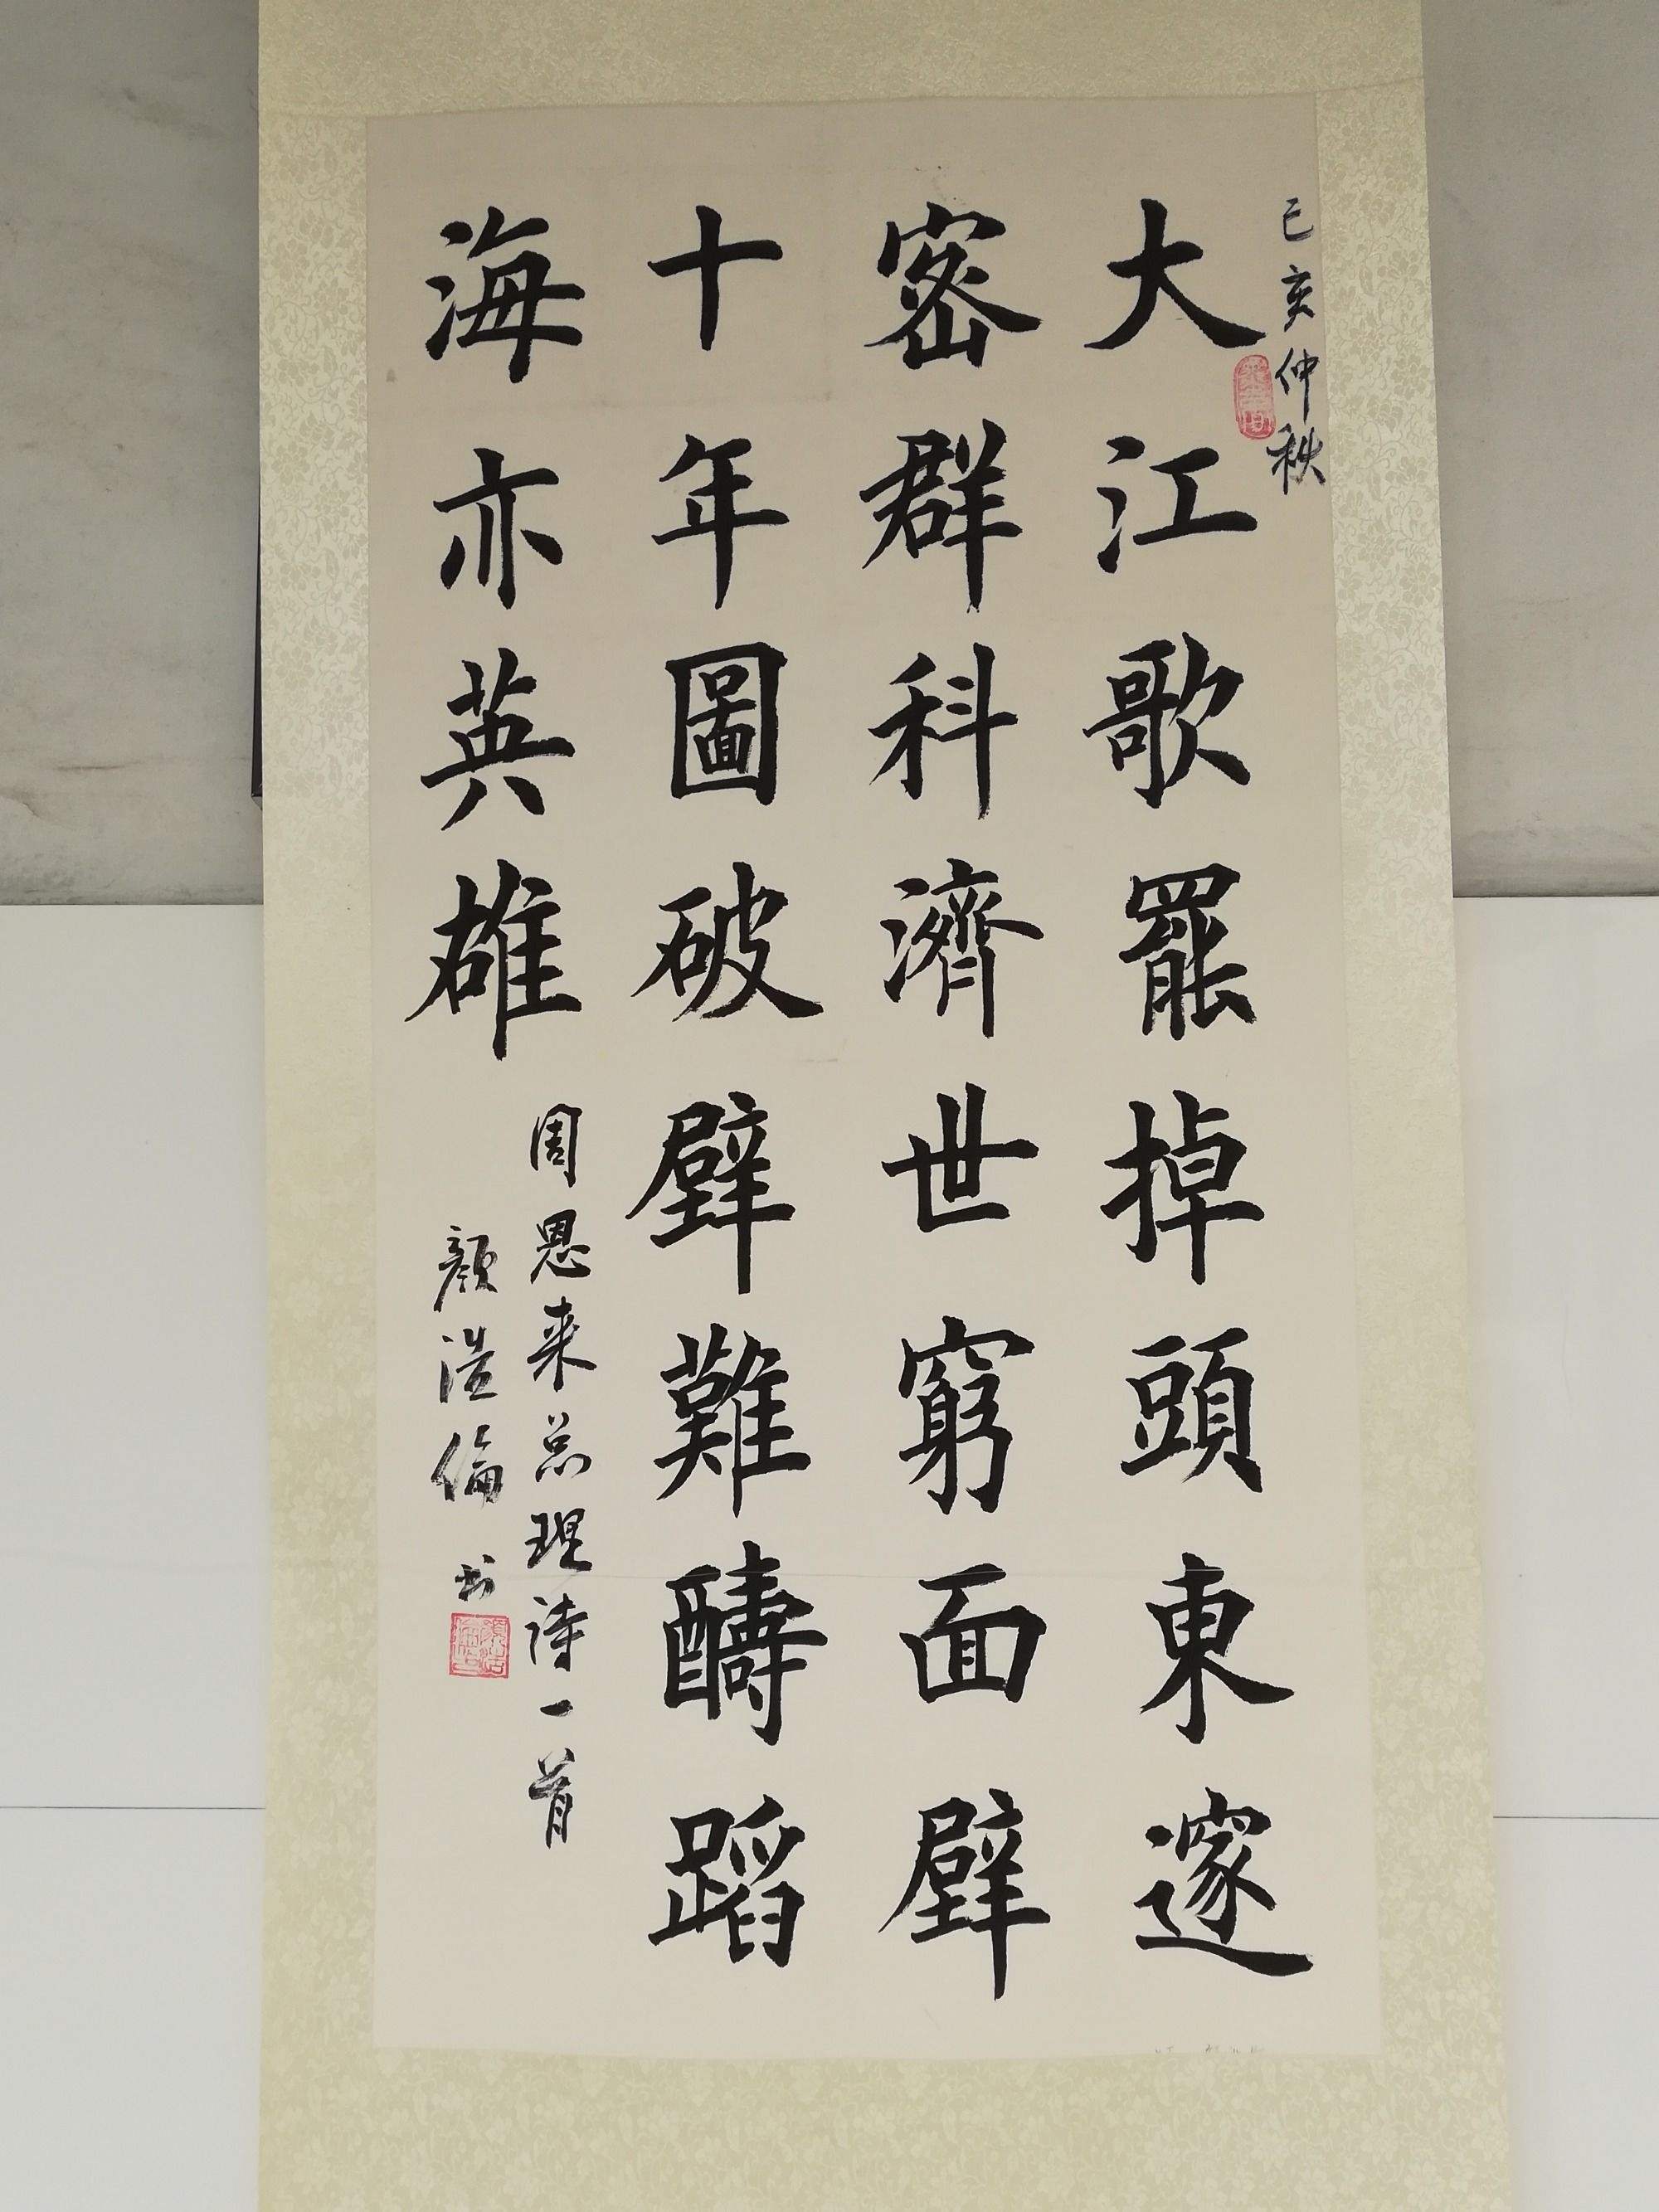 己亥仲秋
大江歌罷掉頭東邃
密群科濟世窮面壁
十年圖破壁難醻蹈
海亦英雄
周恩来总理诗一首
顏浩倫书